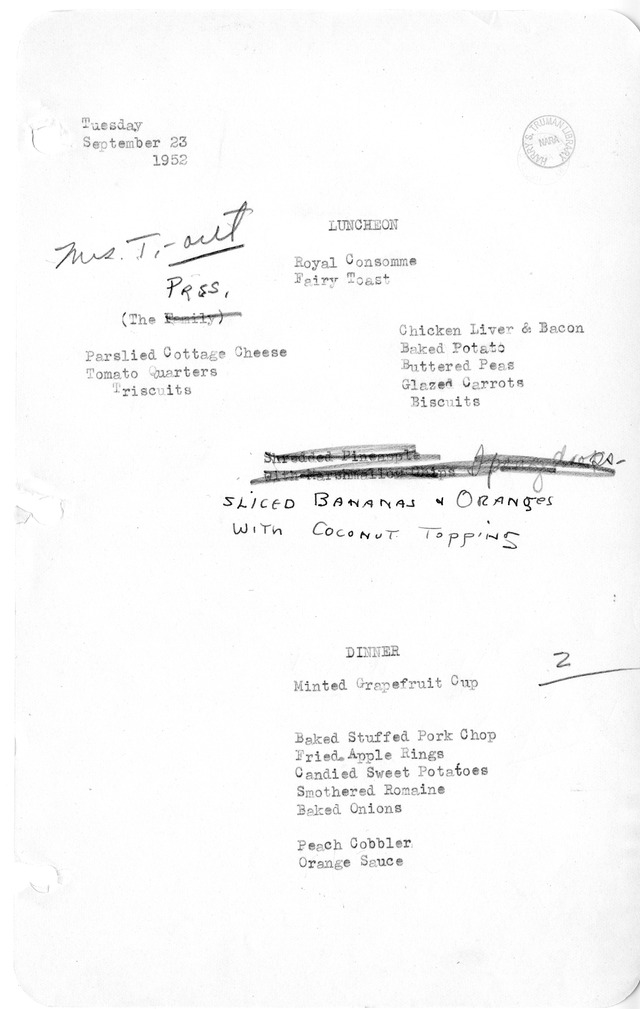 Tuesday
September 23
1952
HARRY S. TRUMAN LIBRARY
NARA
Mrs. T,- out
LUNCHEON
Royal Consomme
Fairy Toast
PRES.
(The Family)
Parslied Cottage Cheese
Tomato Quarters
Triscuits
Chicken Liver & Bacon
Baked Potato
Buttered Peas
Glazed Carrots
Biscuits
Shredded Pineapple
With Marshmallow Chips
SLICED BANANAS & ORANGES
WITH COCONUT TOPPING
DINNER
2
Minted Grapefruit Cup
Baked Stuffed Pork Chop
Fried Apple Rings
Candied Sweet Potatoes
Smothered Romaine
Baked Onions
Peach Cobbler
Orange Sauce